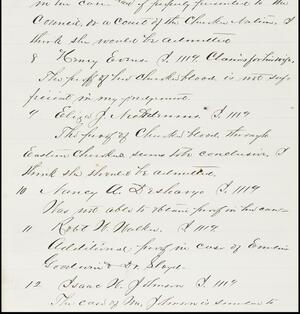 in the case of properly presented to the
Council, or a court of the Cherokee Nation. I
think she would be admitted
8 Henry Evans I. 1114 Claims for his wife.
The proof of his Cherokee blood is not suf
ficient in my judgment.
9 Eliza J. I. 1114
The proof of Cherokee blood through
Eastern Cherokees seems to be conclusive. I
think she should be admitted.
10 Nancy A. I. 1114
Was not able to obtain proof in his case
11 Robt W. Walker I. 1114
Additional proof in case of
Goodwin & Dr. Lloyd.
12 Isaac W. Johnson I. 1114
The case of Mr. Johnson is similar to